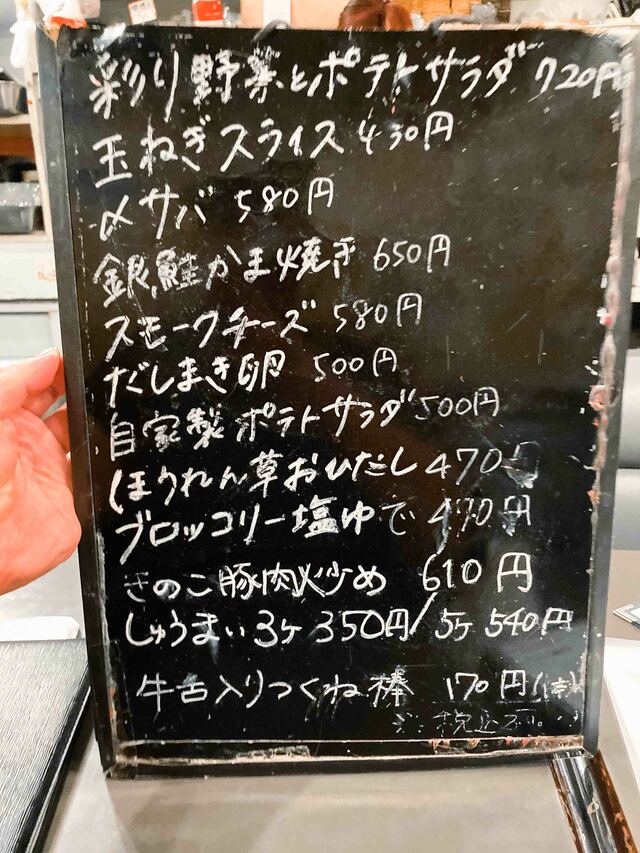 彩り野菜とポテトサラダ 720円
玉ねぎスライス 430円
〆サバ 580円
銀鮭かま焼き 650円
スモークチーズ 580円
だしまき卵 500円
自家製ポテトサラダ 500円
ほうれん草おひだし 470円
ブロッコリー塩ゆで 470円
きのこ豚肉炒め 610円
しゅうまい 3ヶ 350円/5ヶ 540円
牛舌入りつくね棒 170円
税込